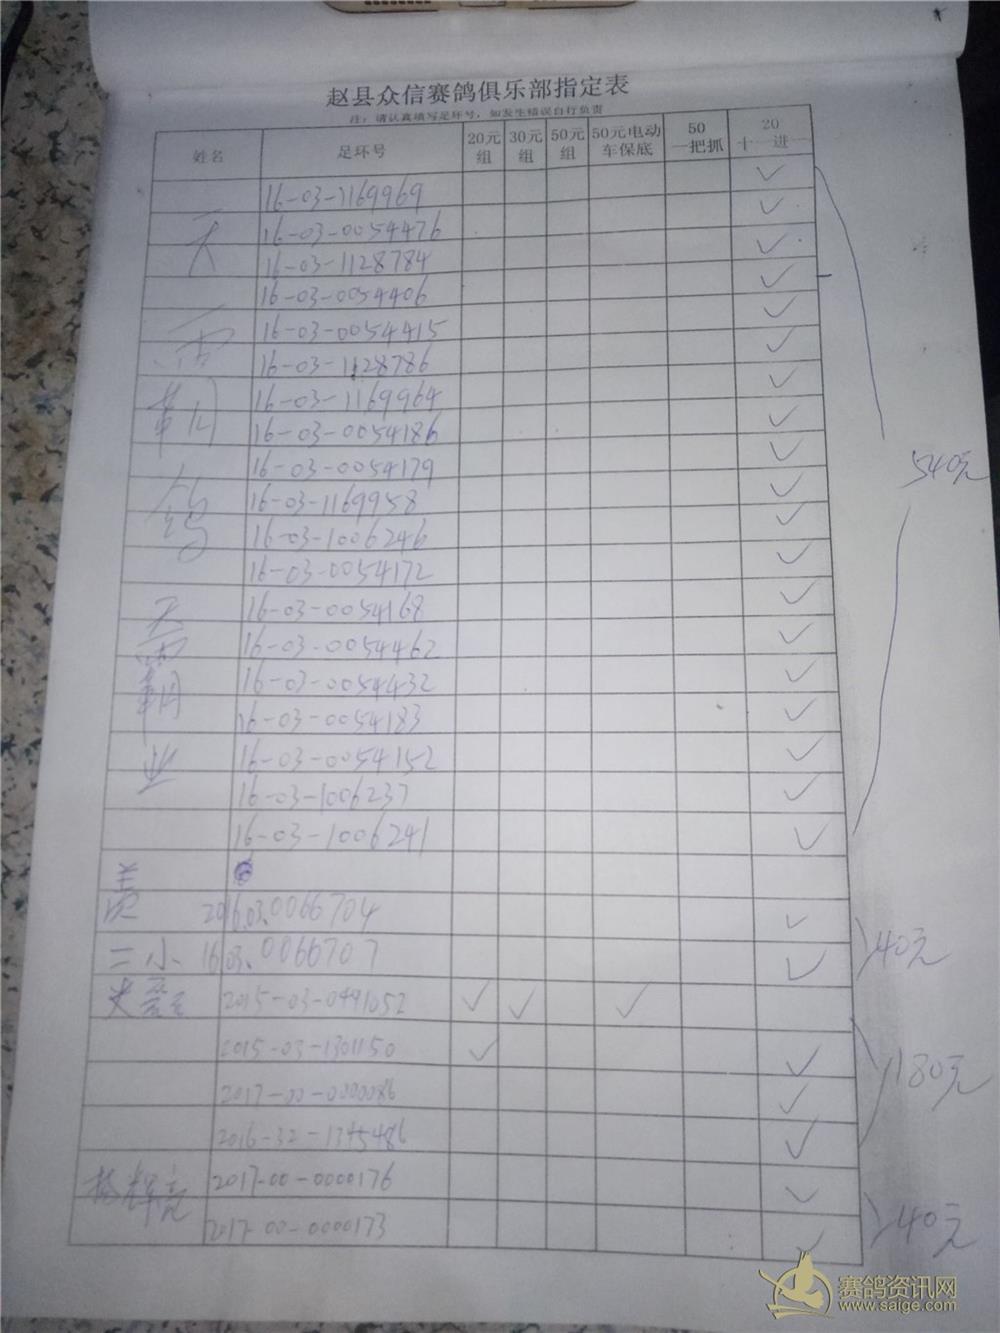 赵县众信赛鸽俱乐部指定表
注：请认真填写足环号，如发生错误自行负责
姓名 足环号 20元组 30元组 50元组 50元电动车保底 50一把抓 20十一进一
16-03-1169969 ✓
16-03-0054476 ✓
天 16-03-1128784 ✓
16-03-0054406 ✓
雨 16-03-0054415 ✓
16-03-1128786 ✓
16-03-1169964 ✓
16-03-0054186 ✓
16-03-0054179 ✓
鸽 16-03-1169958 ✓
16-03-1006246 ✓
16-03-0054172 ✓
天 16-03-0054168 ✓
雨 16-03-0054462 ✓
16-03-0054432 ✓
16-03-0054183 ✓
业 16-03-0054152 ✓
16-03-1006237 ✓
16-03-1006241 ✓
540元
2016.03.0066704 ✓
二小 16.03.0066707 ✓
40元
2015-03-0491052 ✓ ✓ ✓
2015-03-1301150 ✓ ✓
2017-00-0000086 ✓
2016-32-1345486 ✓
180元
杨辉亮 2017-00-0000176 ✓
2017-00-0000173 ✓
40元
赛鸽资讯网
www.saige.com